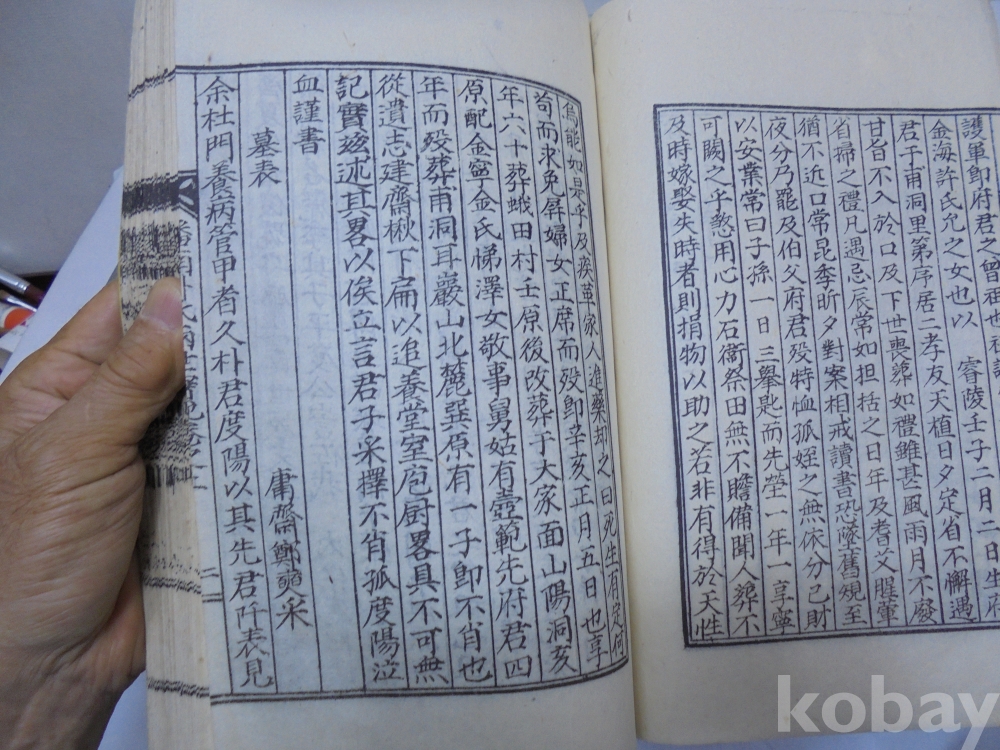 護軍即府君之曾祖也
金海許氏允之女也以 睿陵壬子二月二日生府
君于甫洞里第序居二孝友天植日夕定省不懈遇
甘旨不入於口及下世喪葬如禮雖甚風雨月不廢
省掃之禮凡遇忌辰常如担括之日年及耆艾腥葷
猶不近口常昆季昕夕對案相戒讀書恐墜舊規至
夜分乃罷及伯父府君歿特恤孤姪之無依分己財
以安業常曰子孫一日三擧匙而先塋一年一享寧
可闕之乎慤用心力石衛祭田無不贍備聞人葬不
及時嫁娶失時者則捐物以助之若非有得於天性
烏能如是乎及疾革家人進藥却之曰死生有定何
苟而求免屛婦女正席而歿即辛亥正月五日也享
年六十葬蛾田村壬原後改葬于大家面山陽洞亥
原配金寧金氏悌澤女敬事舅姑有壺範先府君四
年而歿葬甫洞耳巖山北麓巽原有一子即不肖也
從遺志建齋楸下扁以追養堂室庖厨畧具不可無
記實玆述其畧以俟立言君子采擇不肖孤度陽泣
血謹書
墓表
庸齋鄭奭采
余杜門養病管甲者久朴君度陽以其先君阡表見
kobay